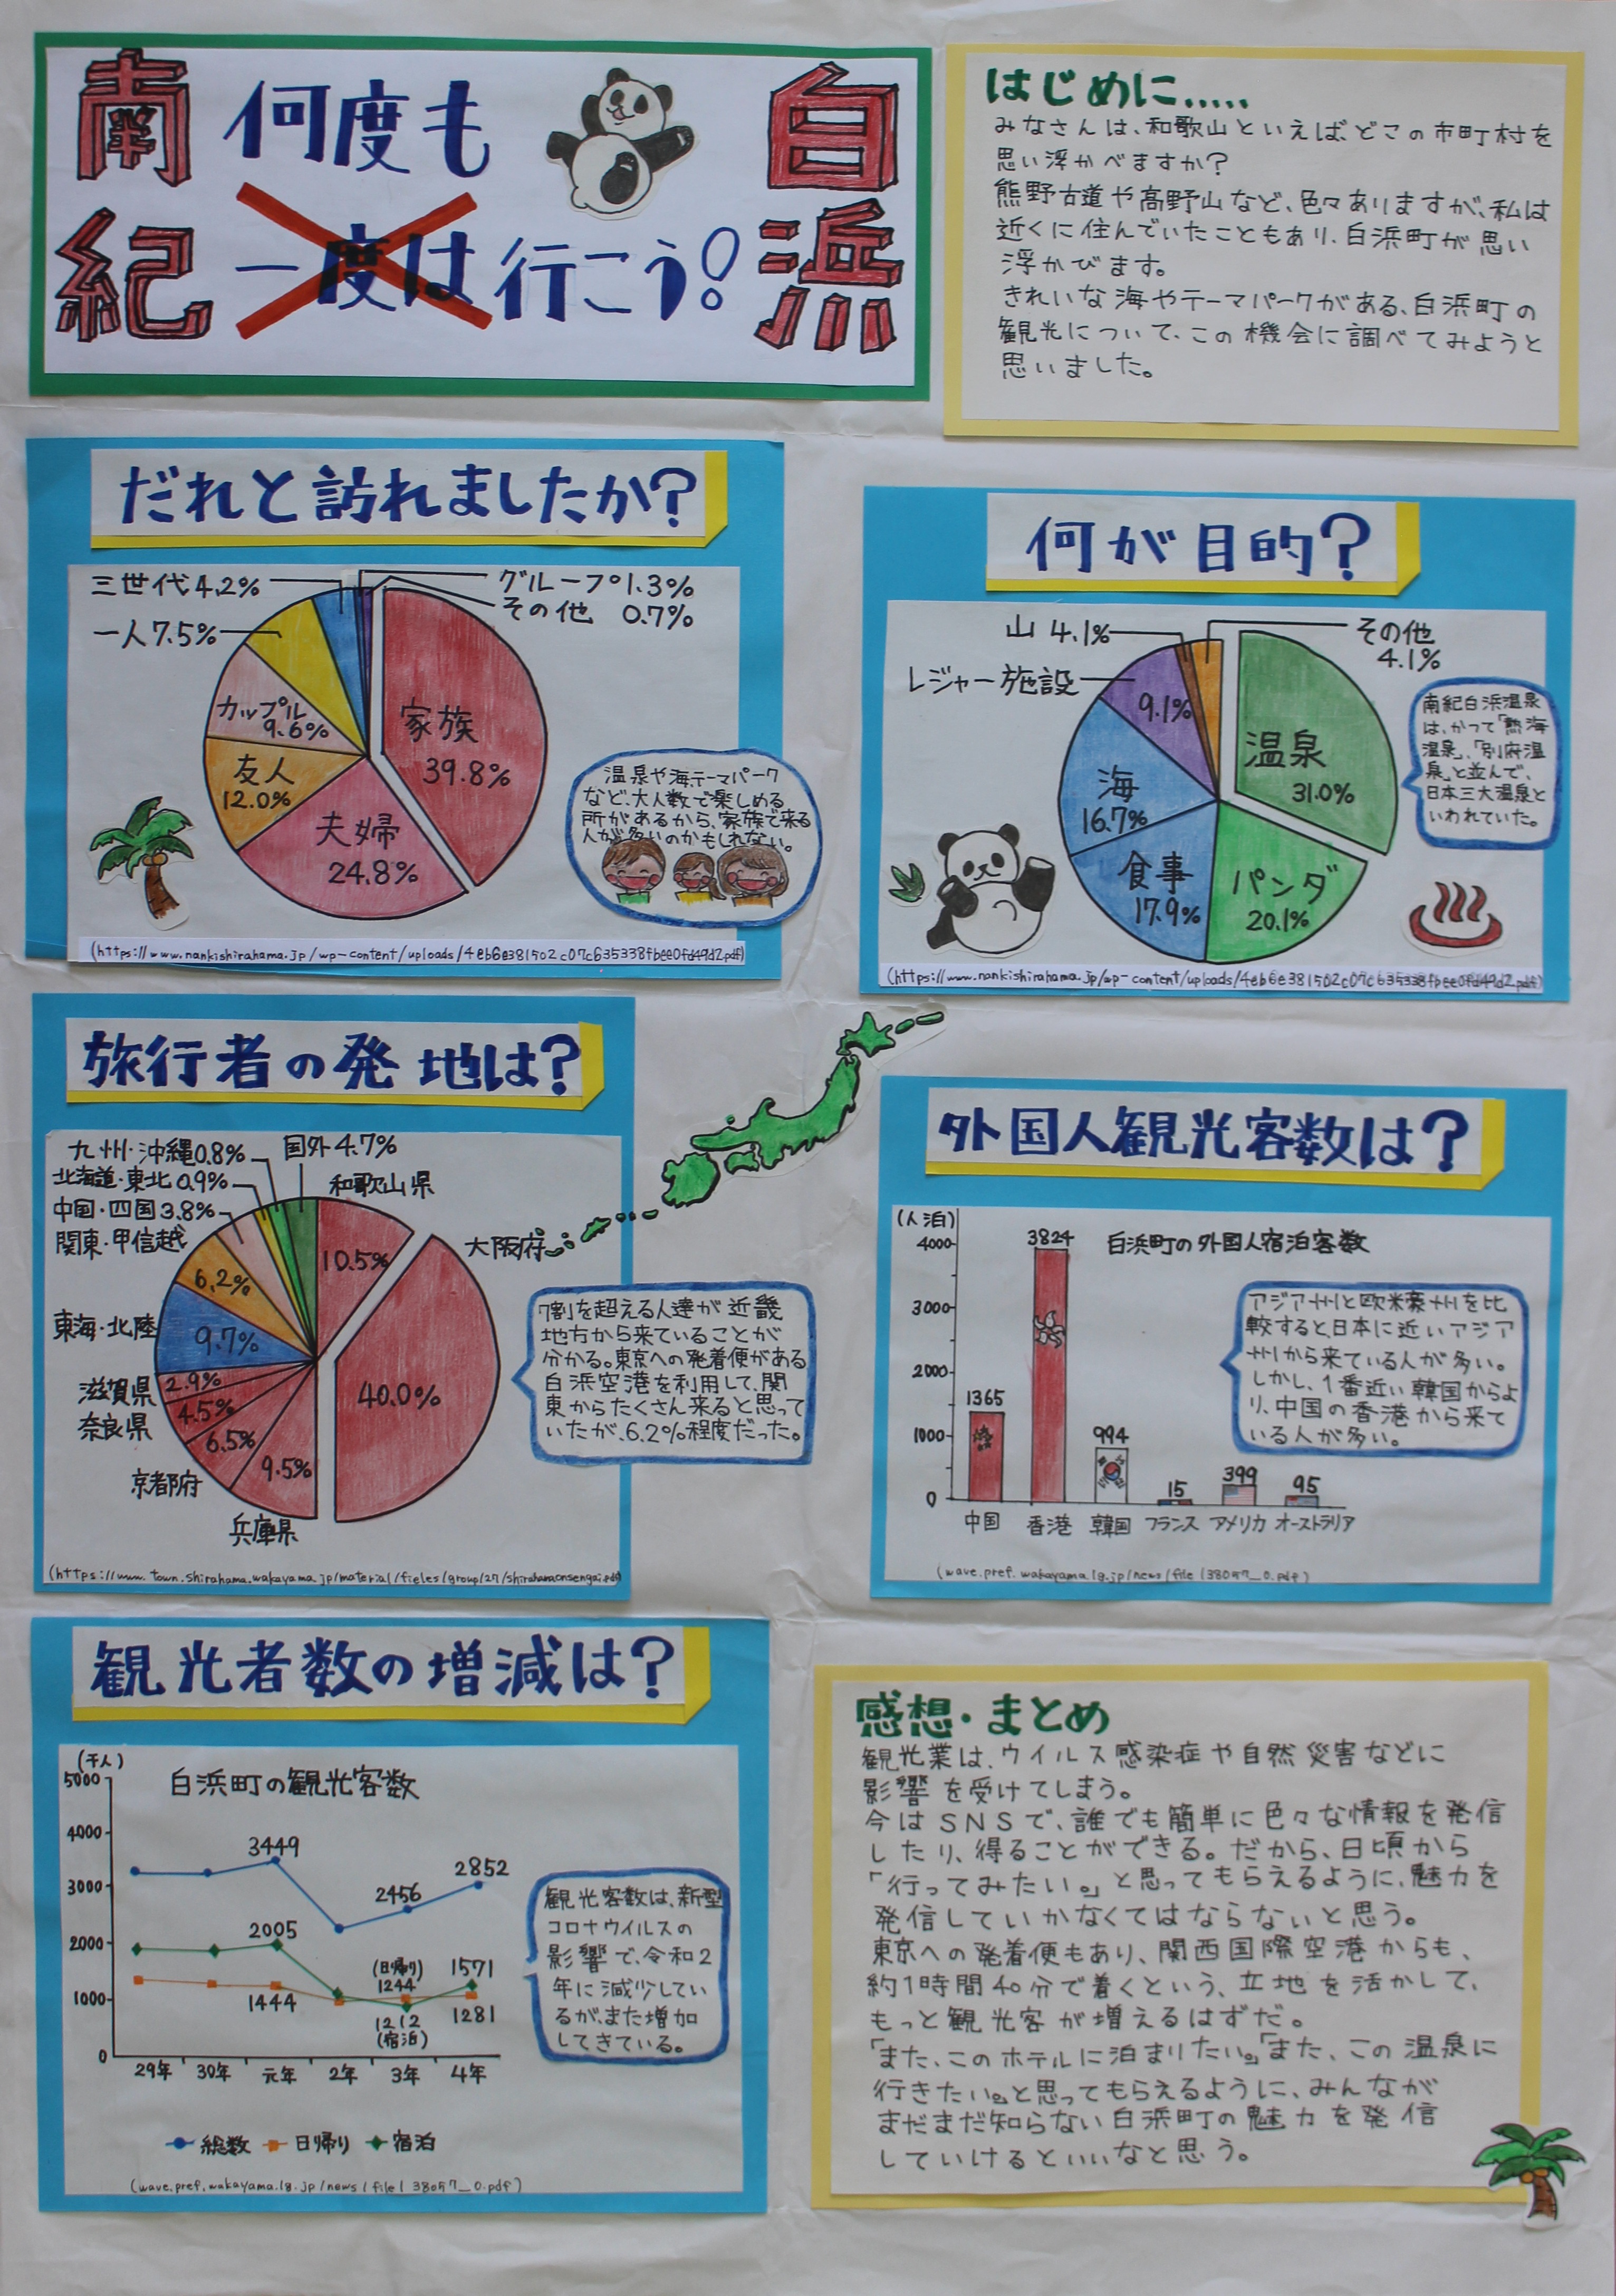 南紀
白浜
何度も
一度は行こう!
はじめに.....
みなさんは、和歌山といえば、どこの市町村を
思い浮かべますか?
熊野古道や高野山など、色々ありますが、私は
近くに住んでいたこともあり、白浜町が思い
浮かびます。
きれいな海やテーマパークがある、白浜町の
観光について、この機会に調べてみようと
思いました。
だれと訪れましたか?
三世代4.2%
グループ1.3%
その他 0.7%
一人7.5%
カップル
9.6%
家族
39.8%
友人
12.0%
夫婦
24.8%
温泉や海、テーマパーク
など、大人数で楽しめる
所があるから、家族で来る
人が多いのかもしれない。
(https://www.nankishirahama.jp/wp-content/uploads/4eb6e381502c07c635338fbee0fd49d2.pdf)
何が目的?
山 4.1%
その他
4.1%
レジャー施設
9.1%
温泉
31.0%
海
16.7%
食事
17.9%
パンダ
20.1%
南紀白浜温泉
は、かつて「熱海
温泉」、「別府温
泉」と並んで、
日本三大温泉と
いわれていた。
(https://www.nankishirahama.jp/wp-content/uploads/4eb6e381502c07c635338fbee0fd49d2.pdf)
旅行者の発地は?
九州・沖縄0.8%
国外4.7%
北海道・東北0.9%
和歌山県
中国・四国3.8%
関東・甲信越
大阪府
10.5%
6.2%
東海・北陸
9.7%
40.0%
滋賀県
2.9%
奈良県
4.5%
6.5%
京都府
9.5%
兵庫県
7割を超える人達が近畿
地方から来ていることが
分かる。東京への発着便がある
白浜空港を利用して、関
東からたくさん来ると思って
いたが、6.2%程度だった。
(https://www.town.shirahama.wakayama.jp/material/fieles/group/27/shirahamaonsengai.pdf)
外国人観光客数は?
(人泊)
白浜町の外国人宿泊客数
4000
3000
2000
1000
0
1365
3824
994
15
399
95
中国 香港 韓国 フランス アメリカ オーストラリア
アジア州と欧米豪州を比
較すると、日本に近いアジア
州から来ている人が多い。
しかし、1番近い韓国からよ
り、中国の香港から来て
いる人が多い。
(wave.pref.wakayama.lg.jp/news/file/38057_0.pdf)
観光者数の増減は?
(千人)
白浜町の観光客数
5000
4000
3000
2000
1000
0
3449
2456
2852
2005
(日帰り)
1244
1571
1444
1212
(宿泊)
1281
29年 30年 元年 2年 3年 4年
総数 日帰り 宿泊
観光客数は、新型
コロナウイルスの
影響で、令和2
年に減少してい
るが、また増加
してきている。
(wave.pref.wakayama.lg.jp/news/file/38057_0.pdf)
感想・まとめ
観光業は、ウイルス感染症や自然災害などに
影響を受けてしまう。
今はSNSで、誰でも簡単に色々な情報を発信
したり、得ることができる。だから、日頃から
「行ってみたい。」と思ってもらえるように、魅力を
発信していかなくてはならないと思う。
東京への発着便もあり、関西国際空港からも、
約1時間40分で着くという、立地を活かして、
もっと観光客が増えるはずだ。
「また、このホテルに泊まりたい。」「また、この温泉に
行きたい。」と思ってもらえるように、みんなが
まだまだ知らない白浜町の魅力を発信
していけるといいなと思う。